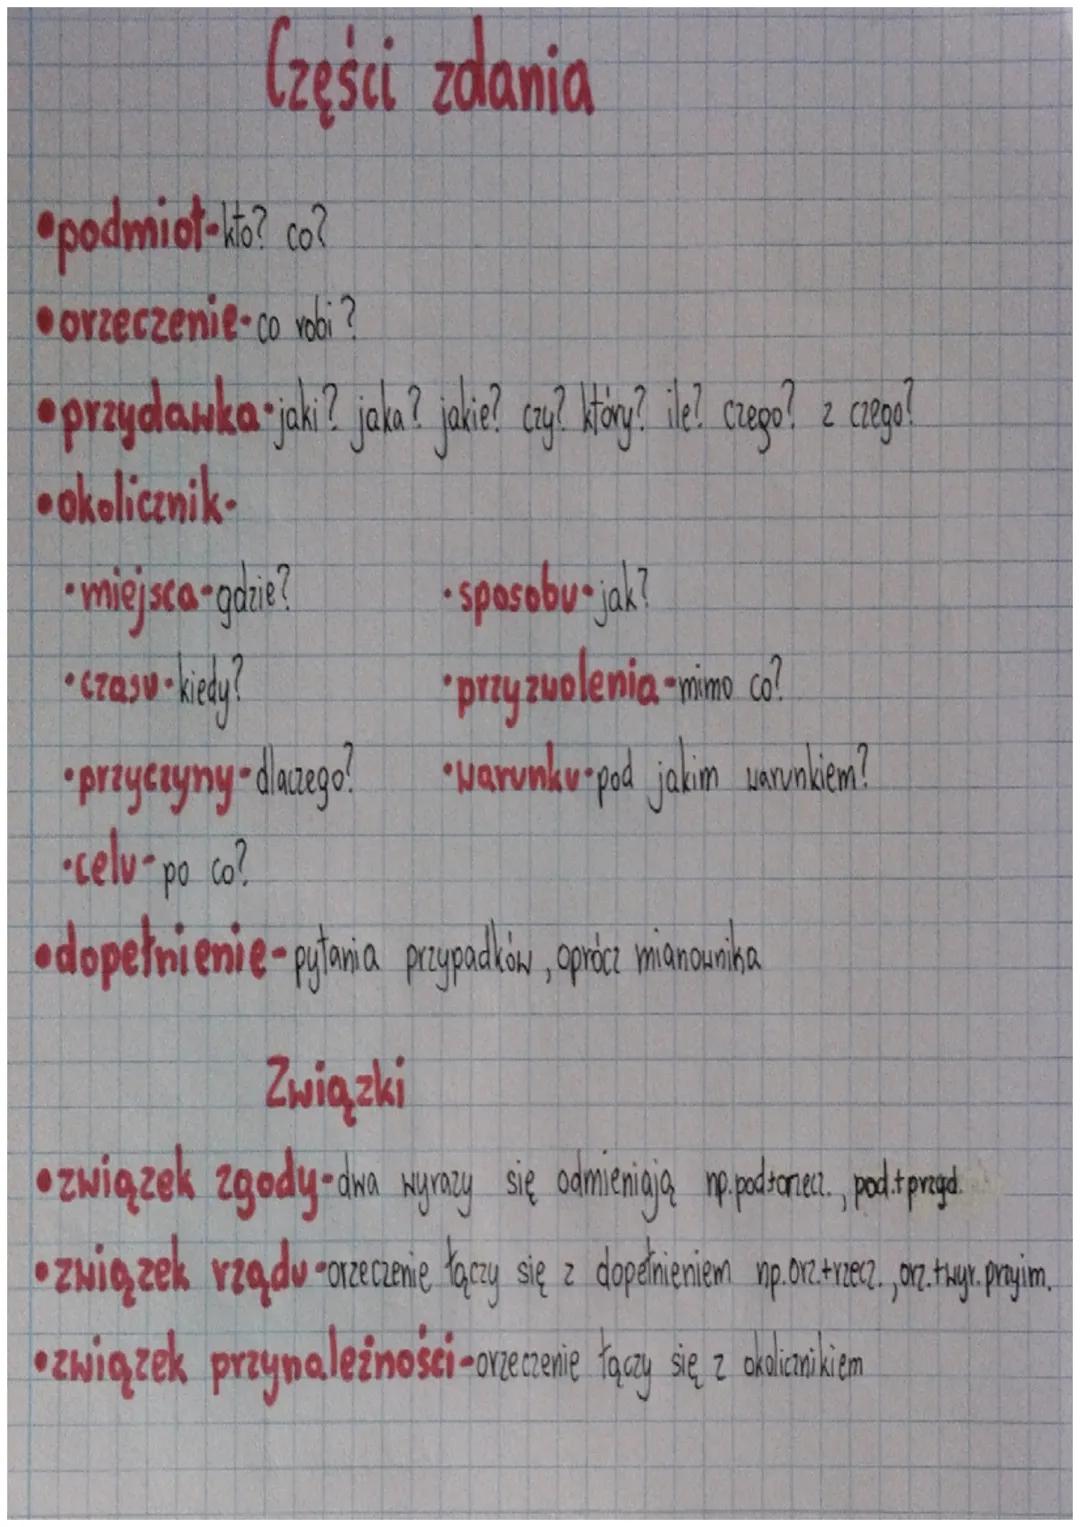 Części zdania
•podmiot-kto? co?
•orzeczenie-co robi?
•przydawka-jaki? jaka? jakie? czy? który? ile? czego? z czego?
•okolicznik-
•miejsca-gdzie? •sposobu-jak?
•czasu-kiedy? •przyzwolenia-mimo co?
•przyczyny-dlaczego? •warunku-pod jakim warunkiem?
•celu-po co?
•dopełnienie-pytania przypadków, oprócz mianownika
Związki
•związek zgody-dwa wyrazy się odmieniają np.pod+orzecz., pod.+przyd.
•związek rządu-orzeczenie łączy się z dopełnieniem np.orz.+rzecz., orz.+wyr.przyim.
•związek przynależności-orzeczenie łączy się z okolicznikiem